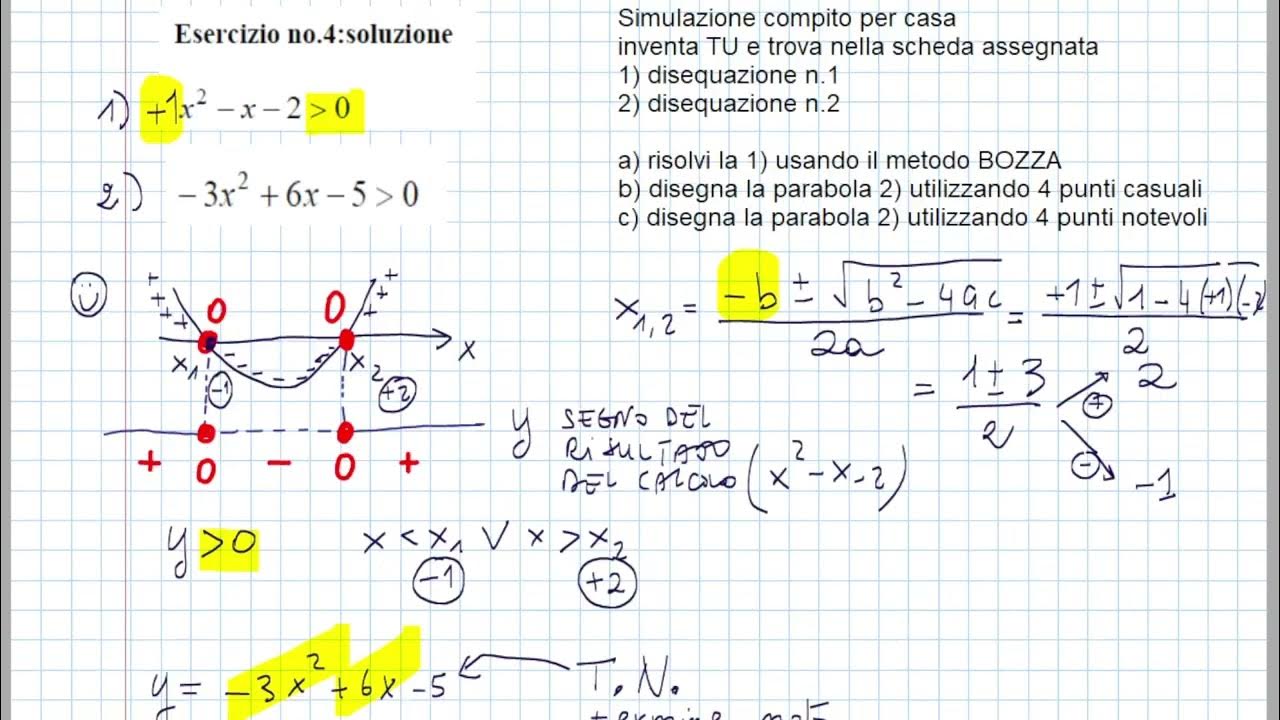 Esercizio no.4:soluzione
1) +1x² − x − 2 > 0
2) − 3x² + 6x − 5 > 0
Simulazione compito per casa
inventa TU e trova nella scheda assegnata
1) disequazione n.1
2) disequazione n.2
a) risolvi la 1) usando il metodo BOZZA
b) disegna la parabola 2) utilizzando 4 punti casuali
c) disegna la parabola 2) utilizzando 4 punti notevoli
x₁,₂ = (−b ± √(b² − 4ac)) / 2a = (+1 ± √(1 − 4(+1)(−2 / 2
= (1 ± 3) / 2
+ 2
− −1
+ + + + + + +
0 0
x₁ x₂ x
−1 +2
− − − − − −
y
+ 0 − 0 +
SEGNO DEL
RISULTATO
DEL CALCOLO (x² − x − 2)
y > 0 x < x₁ ∨ x > x₂
−1 +2
y = −3x² + 6x − 5 T.N.
termine